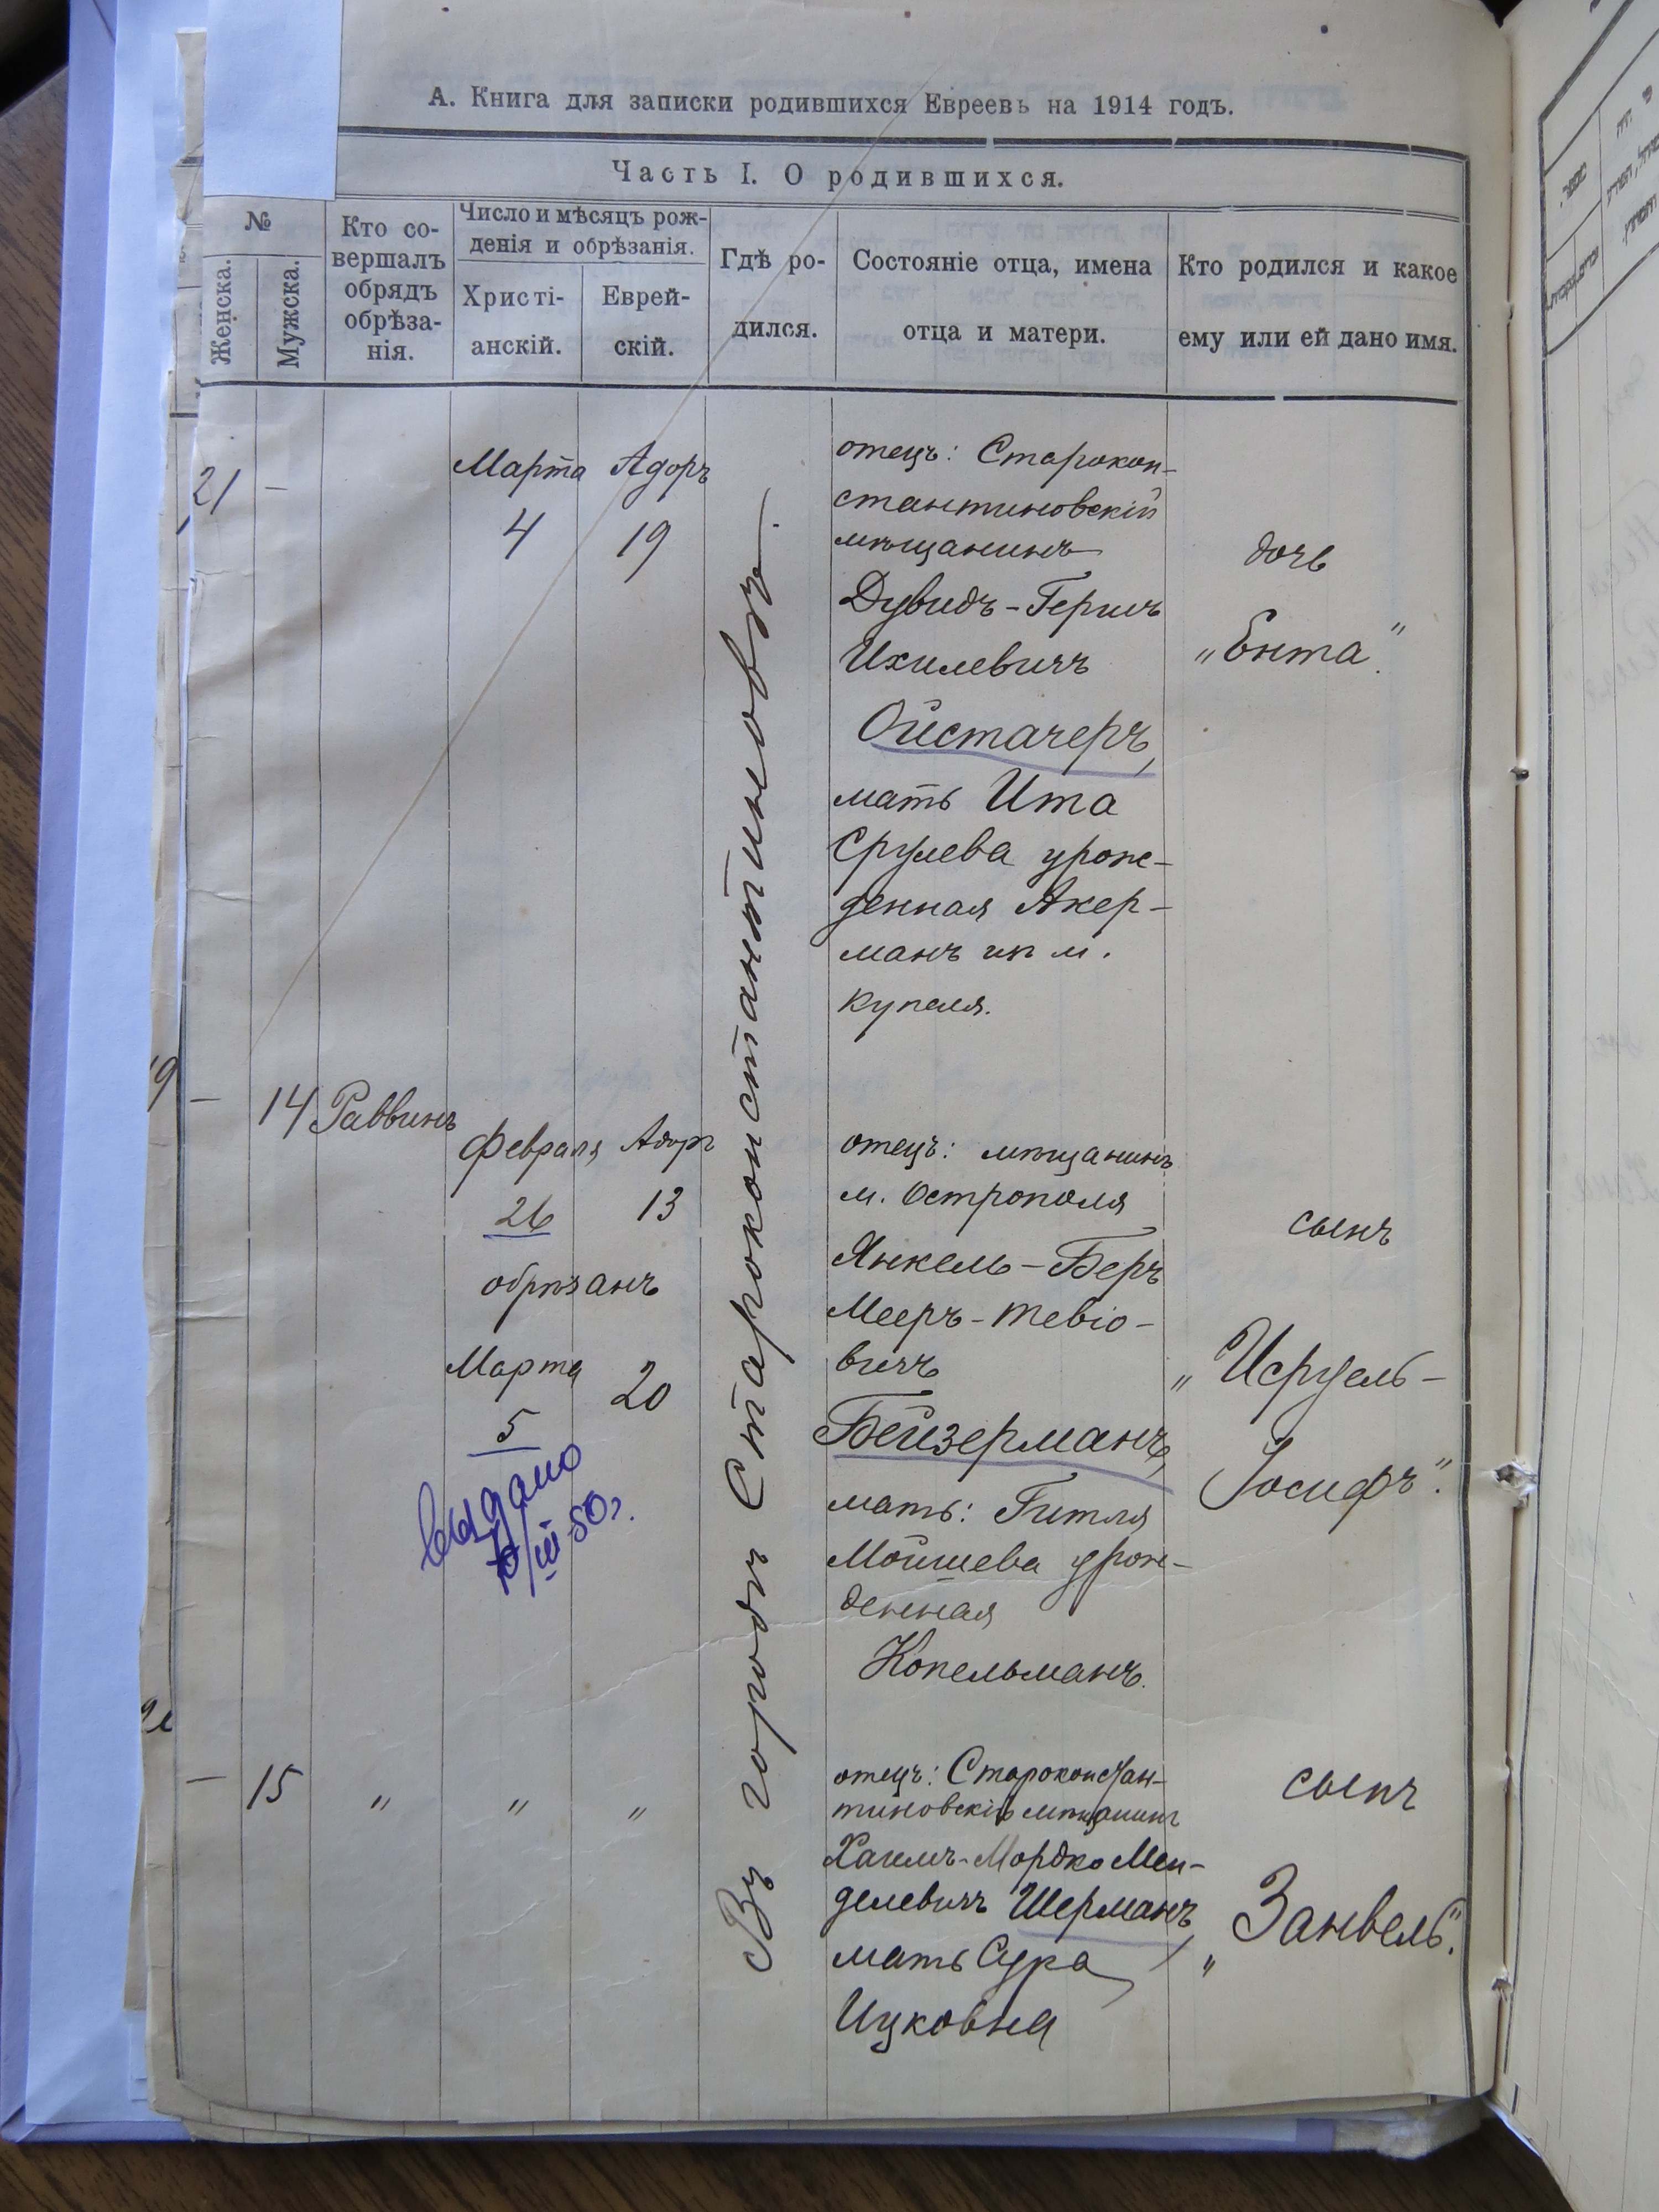 А. Книга для записки родившихся Евреевъ на 1914 годъ.
Часть I. О родившихся.
№
Женска.
Мужска.
Кто со-
вершалъ
обрядъ
обрѣза-
нія.
Число и мѣсяцъ рож-
денія и обрѣзанія.
Христі-
анскій.
Еврей-
скій.
Гдѣ ро-
дился.
Состояніе отца, имена
отца и матери.
Кто родился и какое
ему или ей дано имя.
21 —
Марта
4
Адоръ
19
Въ городѣ Староконстантиновѣ.
отецъ: Старокон-
стантиновскій
мѣщанинъ
Дувидъ-Гершъ
Ихилевичъ
Ойстачеръ,
мать Ита
Срулева урож-
денная Акер-
манъ изъ м.
Купеля.
дочь
„Ента".
— 14
Раввинъ
Февраля
26
обрѣзанъ
Марта
5
Адоръ
13
20
выдано
/III 50г.
отецъ: мѣщанинъ
м. Острополя
Янкель-Беръ
Мееръ-Тевіо-
вичъ
Бейзерманъ,
мать: Гитля
Мойшева урож-
денная
Копельманъ.
сынъ
„Исруель-
Іосифъ".
— 15 „ „ „
отецъ: Староконстан-
тиновскій мѣщанинъ
Хаимъ-Мордко Мен-
делевичъ Шерманъ,
мать Сура
Ицковна
сынъ
„Занвель".